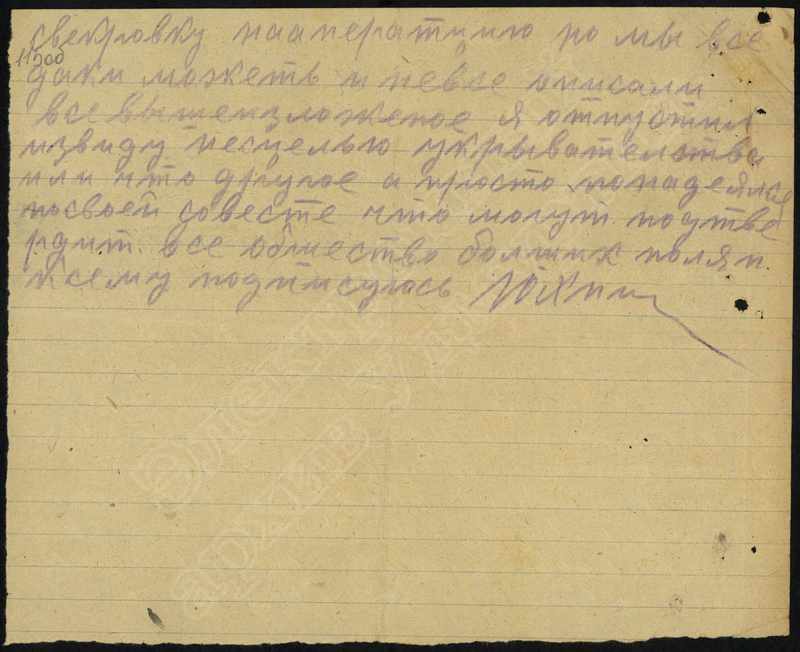 свекровку но мы все
11300
даки можеть и невсе описали
все вышеизложеное я отпустил
извиду несцелью укрывателства
или что другое а просто понадеялся
посвоей совесте что могут подтве
рдит. все обшество болших полян.
ксему подписуюсь
Электр
архив